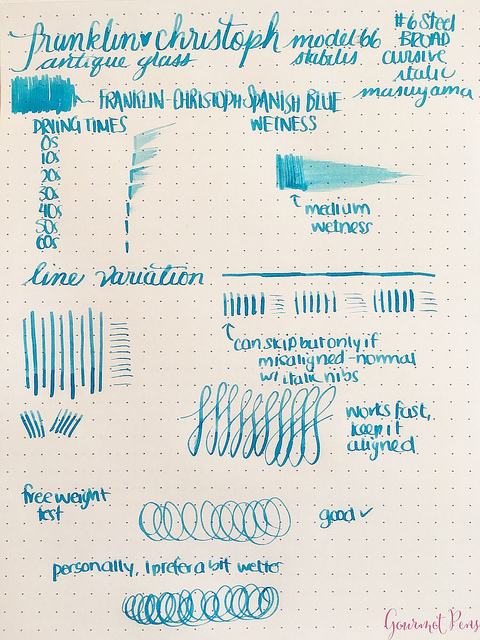 franklin♥christoph model 66 #6 Steel
antique glass stabilis BROAD
cursive
italic
masuyama
FRANKLIN-CHRISTOPH SPANISH BLUE
DRYING TIMES WETNESS
0s
10s
20s
30s
40s
50s
60s
↑ medium
wetness
line variation
↑
can skip but only if
misaligned-normal
w/ italic nibs
works fast,
keep it
aligned
free weight
test
good ✓
personally, I prefer a bit wetter
Gourmet Pens